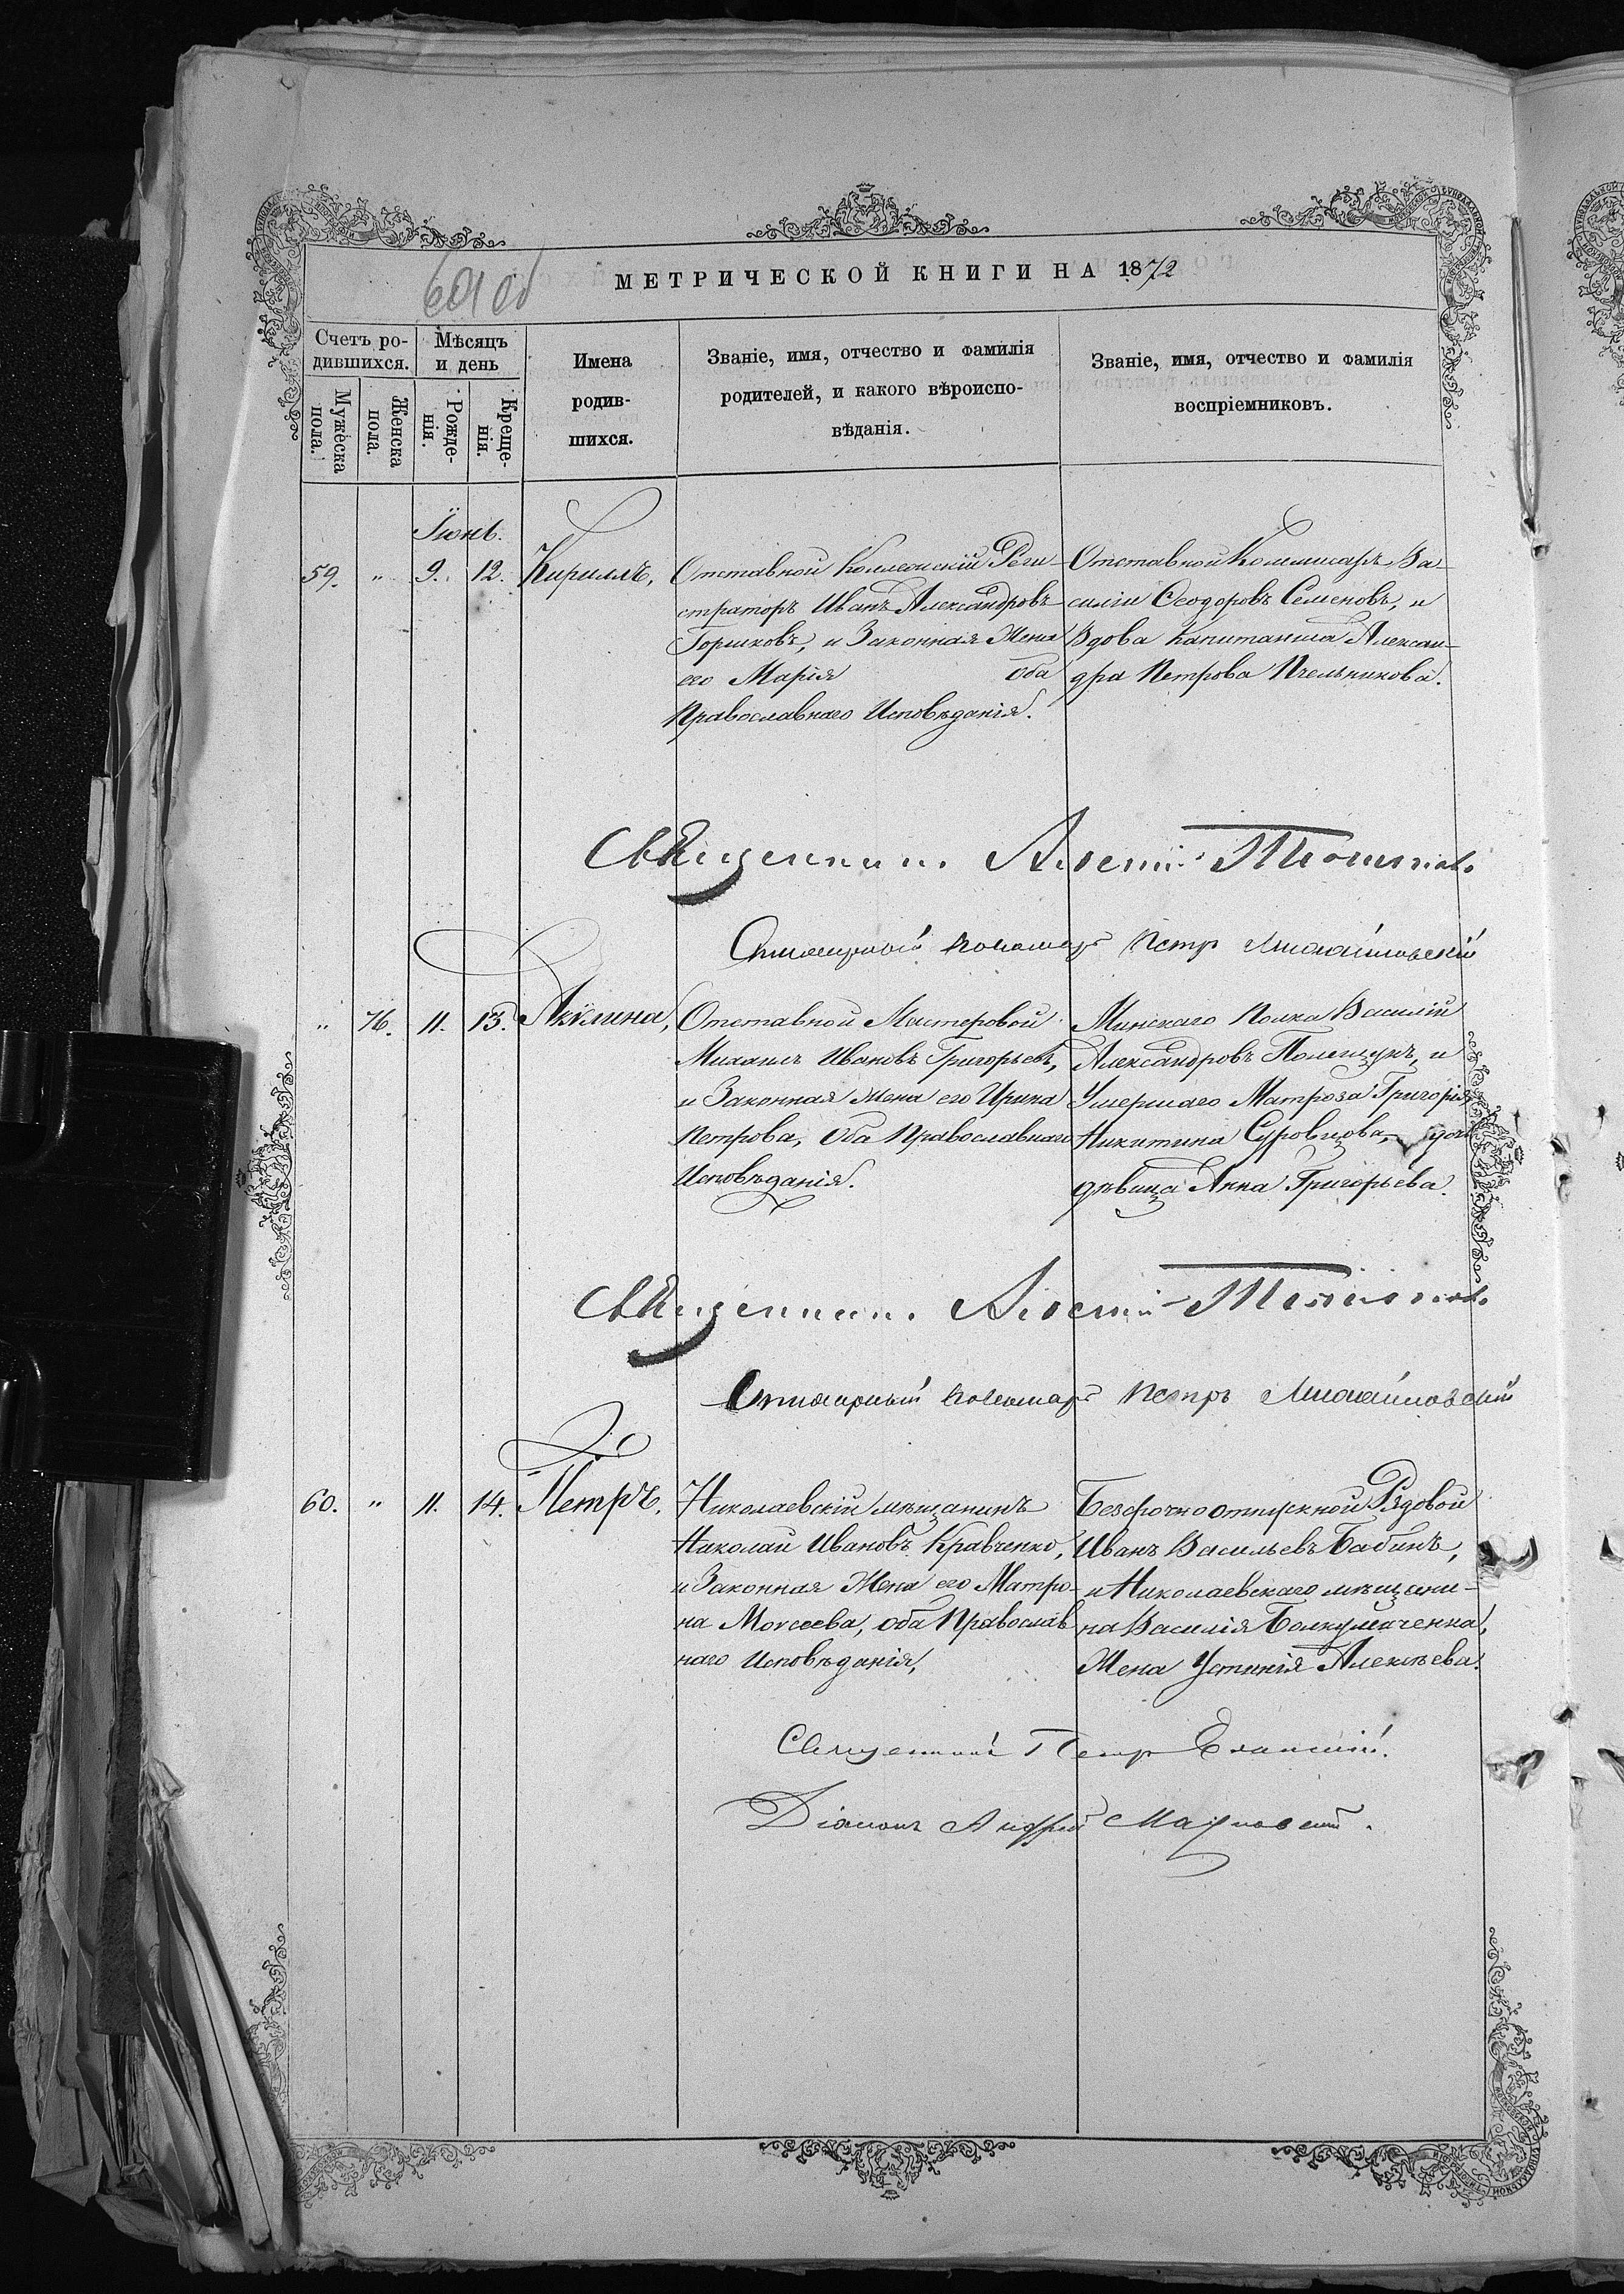 601 об
МЕТРИЧЕСКОЙ КНИГИ НА 1872
Счетъ ро-
дившихся.
Мѣсяцъ
и день
Имена
родив-
шихся.
Званіе, имя, отчество и фамилія
родителей, и какого вѣроиспо-
вѣданія.
Званіе, имя, отчество и фамилія
воспріемниковъ.
Мужеска
пола.
Женска
пола.
Рожде-
нія.
Креще-
нія.
Іюнь.
59. " 9. 12. Кириллъ,
Отставной Коллежскій Реги-
страторъ Иванъ Александровъ
Горшковъ, и Законная Жена
его Марія оба
Православнаго Исповѣданія.
Отставной Коммисаръ Ва-
силій Ѳеодоровъ Семеновъ, и
Вдова Капитанша Алексан-
дра Петрова Пчельникова.
Священник
Стихарный пономарь Петр Михайловскій
" 76. 11. 13. Акулина,
Отставной Мастеровой
Михаилъ Ивановъ Григорьевъ,
и Законная Жена его Ирина
Петрова, Оба Православнаго
Исповѣданія.
Минскаго Полка Василій
Александровъ Полещукъ, и
Умершаго Матроза Григорія
Никитина Суровцова, дочь
дѣвица Анна Григорьева.
Священник
Стихарный пономарь Петръ Михайловскій
60. " 11. 14. Петръ,
Николаевскій мѣщанинъ
Николай Ивановъ Кравченко,
и Законная Жена его Матро-
на Моисеева, оба Православ
наго Исповѣданія,
Безсрочноотпускной Рядовой
Иванъ Васильевъ Бабинъ,
и Николаевскаго мѣщани-
на Василія
Жена Устинія Алексѣева.
Священникъ Петр Еланскій.
Діаконъ Андрей